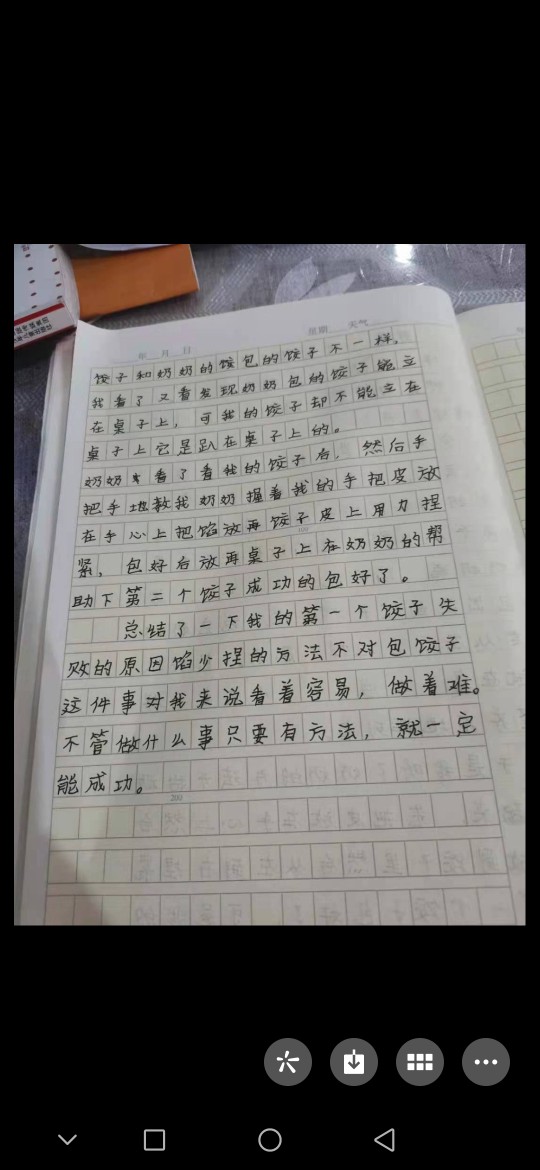 年 月 日
星期 天气
饺子和奶奶的饺包的饺子不一样。
我看了又看发现奶奶包的饺子能立
在桌子上，可我的饺子却不能立在
桌子上它是趴在桌子上的。
奶奶看了看我的饺子后，然后手
把手地教我奶奶握着我的手把皮放
在手心上把馅放再饺子皮上用力捏
紧，包好后放再桌子上在奶奶的帮
助下第二个饺子成功的包好了。
总结了一下我的第一个饺子失
败的原因馅少捏的方法不对包饺子
这件事对我来说看着容易，做着难。
不管做什么事只要有方法，就一定
能成功。
200